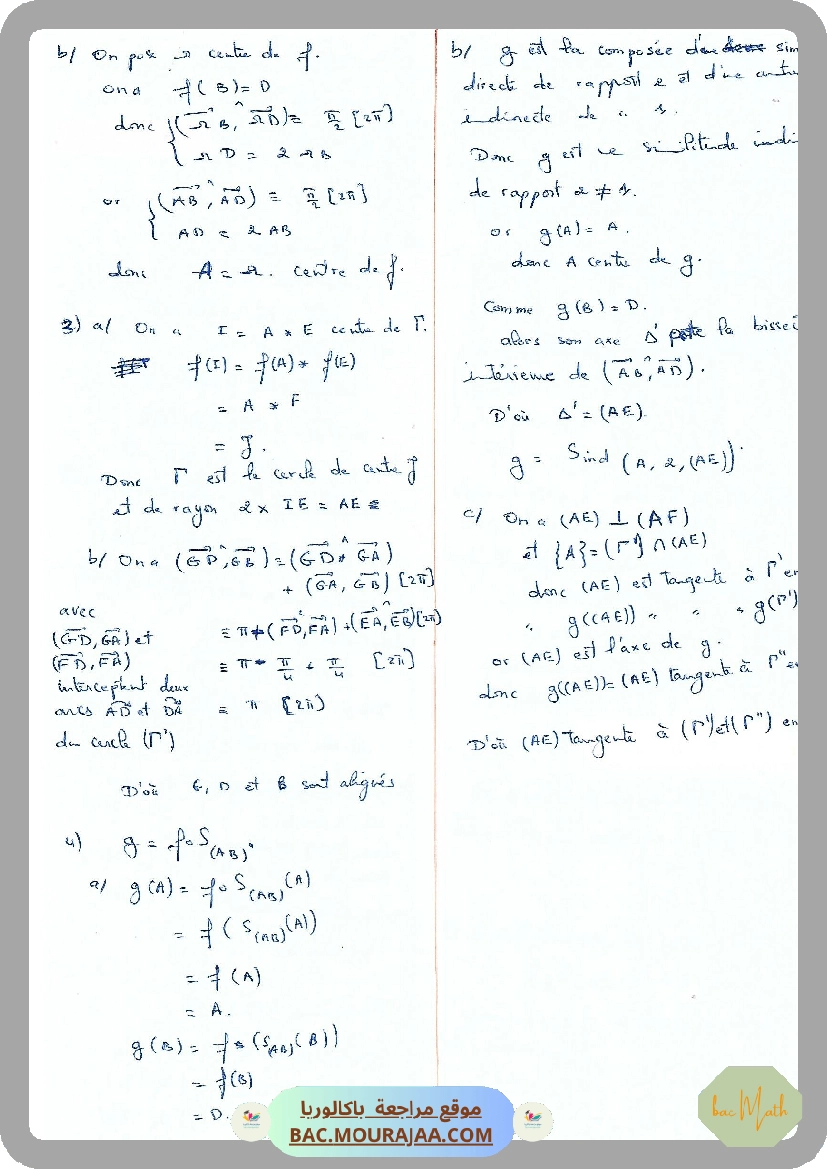 b/ On pose Ω centre de f.
on a f(B) = D
donc { (ΩB, ΩD) ≡ π/2 [2π]
ΩD = 2 ΩB
or { (AB, AD) ≡ π/2 [2π]
AD = 2 AB
donc A = Ω. centre de f.
3) a/ On a I = A * E centre de Γ.
f(I) = f(A) * f(E)
= A * F
= J.
Donc Γ' est le cercle de centre J
et de rayon 2 x IE = AE
b/ On a (GD, GB) ≡ (GD, GA)
+ (GA, GB) [2π]
avec
(GD, GA) et
(FD, FA)
interceptent deux
arcs AD et DA
du cercle (Γ')
≡ π + (FD, FA) + (EA, EB) [2π]
≡ π - π/4 + π/4 [2π]
≡ π [2π]
D'où G, D et B sont alignés
4) g = f∘S(AB).
a/ g(A) = f∘S(AB)(A)
= f(S(AB)(A))
= f(A)
= A.
g(B) = f(S(AB)(B))
= f(B)
= D.
b/ g est la composée d'une sim
directe de rapport 2 et d'une autre
indirecte de " 1.
Donc g est une similitude indi
de rapport 2 ≠ 1.
or g(A) = A.
donc A centre de g.
Comme g(B) = D.
alors son axe Δ' porte la bissec
intérieure de (AB, AD).
D'où Δ' = (AE).
g = Sind (A, 2, (AE)).
c/ On a (AE) ⊥ (AF)
et {A} = (Γ') ∩ (AE)
donc (AE) est tangente à Γ' en
" g((AE)) " " " g(Γ')
or (AE) est l'axe de g.
donc g((AE)) = (AE) tangente à Γ'' en
D'où (AE) tangente à (Γ') et (Γ'') en
موقع مراجعة باكالوريا
BAC.MOURAJAA.COM
bac Math